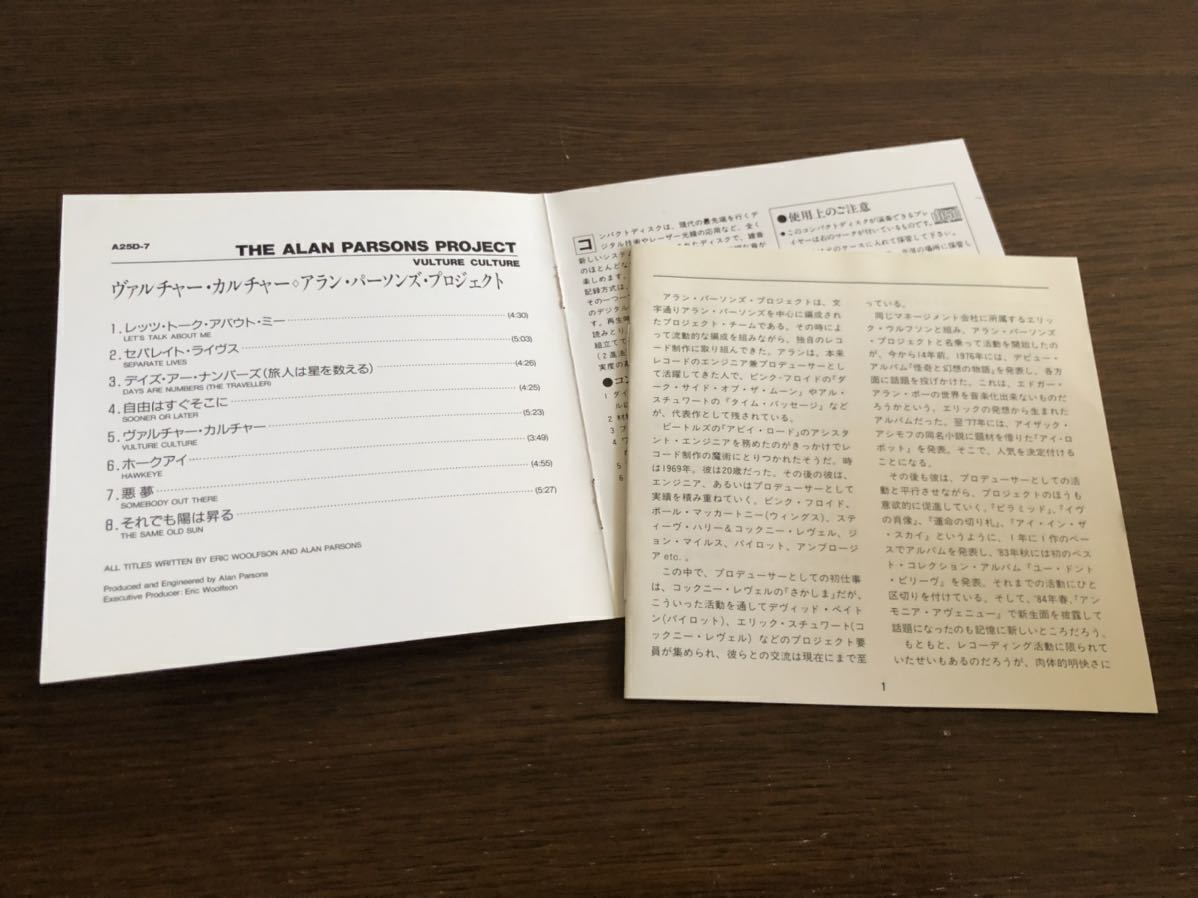 A25D-7
THE ALAN PARSONS PROJECT
VULTURE CULTURE
ヴァルチャー・カルチャー◇アラン・パーソンズ・プロジェクト
1. レッツ・トーク・アバウト・ミー (4:30)
LET'S TALK ABOUT ME
2. セパレイト・ライヴス (5:03)
SEPARATE LIVES
3. デイズ・アー・ナンバーズ(旅人は星を数える) (4:26)
DAYS ARE NUMBERS (THE TRAVELLER)
4. 自由はすぐそこに (4:25)
SOONER OR LATER
5. ヴァルチャー・カルチャー (5:23)
VULTURE CULTURE
6. ホークアイ (3:49)
HAWKEYE
7. 悪 夢 (4:55)
SOMEBODY OUT THERE
8. それでも陽は昇る (5:27)
THE SAME OLD SUN
ALL TITLES WRITTEN BY ERIC WOOLFSON AND ALAN PARSONS
Produced and Engineered by Alan Parsons
Executive Producer: Eric Woolfson
コンパクトディスクは、現代の最先端を行くデ
ジタル技術やレーザー光線の応用など、全く
新しいシステム
のほとんどな
楽しめます。
記録方式は、
その一つ一
のデジタル
す。再生
読みとり、
組立てて
(2進法
実度の
●コン
1
2
3
4
5
6
●使用上のご注意
●このコンパクトディスクが演奏できるプレ
イヤーは右のマークが付いているものです。
アラン・パーソンズ・プロジェクトは、文
字通りアラン・パーソンズを中心に編成され
たプロジェクト・チームである。その時によ
って流動的な編成を組みながら、独自のレコ
ード制作に取り組んできた。アランは、本来
レコードのエンジニア兼プロデューサーとし
て活躍してきた人で、ピンク・フロイドの「ダ
ーク・サイド・オブ・ザ・ムーン」やアル・
スチュワートの「タイム・パッセージ」など
が、代表作として残されている。
ビートルズの「アビイ・ロード」のアシスタ
ント・エンジニアを務めたのがきっかけでレ
コード制作の魔術にとりつかれたそうだ。時
は1969年。彼は20歳だった。その後の彼は、
エンジニア、あるいはプロデューサーとして
実績を積み重ねていく。ピンク・フロイド、
ポール・マッカートニー(ウィングス)、ステ
ィーヴ・ハリー&コックニー・レヴェル、ジ
ョン・マイルス、パイロット、アンブロージ
ア etc.。
この中で、プロデューサーとしての初仕事
は、コックニー・レヴェルの「さかしま」だが、
こういった活動を通してデヴィッド・ペイト
ン(パイロット)、エリック・スチュワート(コ
ックニー・レヴェル) などのプロジェクト要
員が集められ、彼らとの交流は現在にまで至
っている。
同じマネージメント会社に所属するエリッ
ク・ウルフソンと組み、アラン・パーソンズ
・プロジェクトと名乗って活動を開始したの
が、今から14年前。1976年には、デビュー・
アルバム『怪奇と幻想の物語』を発表し、各方
面に話題を投げかけた。これは、エドガー・
アラン・ポーの世界を音楽化出来ないものだ
ろうかという、エリックの発想から生まれた
アルバムだった。翌'77年には、アイザック・
アシモフの同名小説に題材を借りた『アイ・ロ
ボット』を発表。そこで、人気を決定付ける
ことになる。
その後も彼は、プロデューサーとしての活
動と平行させながら、プロジェクトのほうも
意欲的に促進していく。『ピラミッド』、『イヴ
の肖像』、『運命の切り札』、『アイ・イン・ザ
・スカイ』というように、1年に1作のペー
スでアルバムを発表し、'83年秋には初のベス
ト・コレクション・アルバム『ユー・ドント
・ビリーヴ』を発表。それまでの活動にひと
区切りを付けている。そして、'84年春、『アン
モニア・アヴェニュー』で新生面を披露して
話題になったのも記憶に新しいところだろう。
もともと、レコーディング活動に限られて
いたせいもあるのだろうが、肉体的明快さに
1